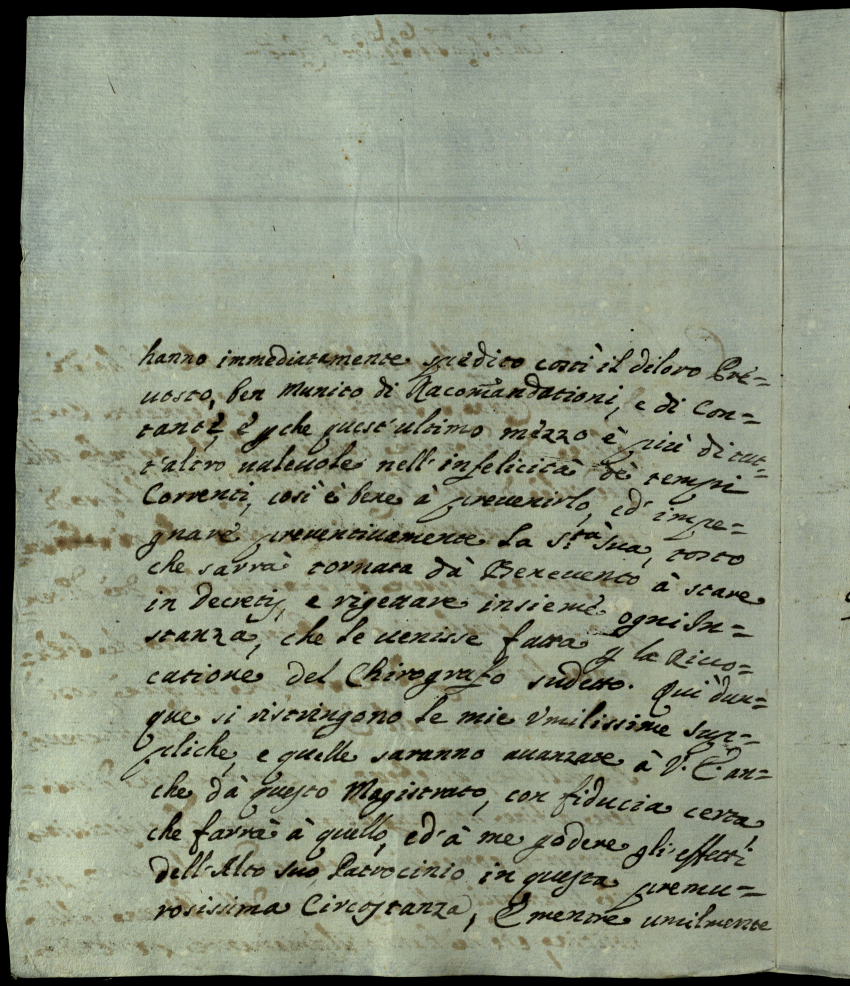 hanno immediatamente spedito costì il diloro Pre=
uosto, ben munito di Racom̃andationi, e di Con=
tanti, e p che quest'ultimo mezzo è più di tut=
t'altro valeuole nell'infelicità de tempi
Correnti, così è bene à prevenirlo, ed' impe=
gnare preventivamente La S.tà Sua, tosto
che sarrà tornata dà Benevento à stare
in Decretis, e rigettare insieme ogni In=
stanza, che le venisse fatta p la Riuo=
catione del Chirografo sudetto. Qui dun=
que si ristringono le mie Vmilissime sup=
pliche, e quelle saranno auanzate à V. E. an=
che dà questo Magistrato, con fiducia certa,
che farrà à quello, ed' à me godere gli effetti
dell'Alto suo Patrocinio in questa premu=
rosissima Circostanza, E mentre umilmente